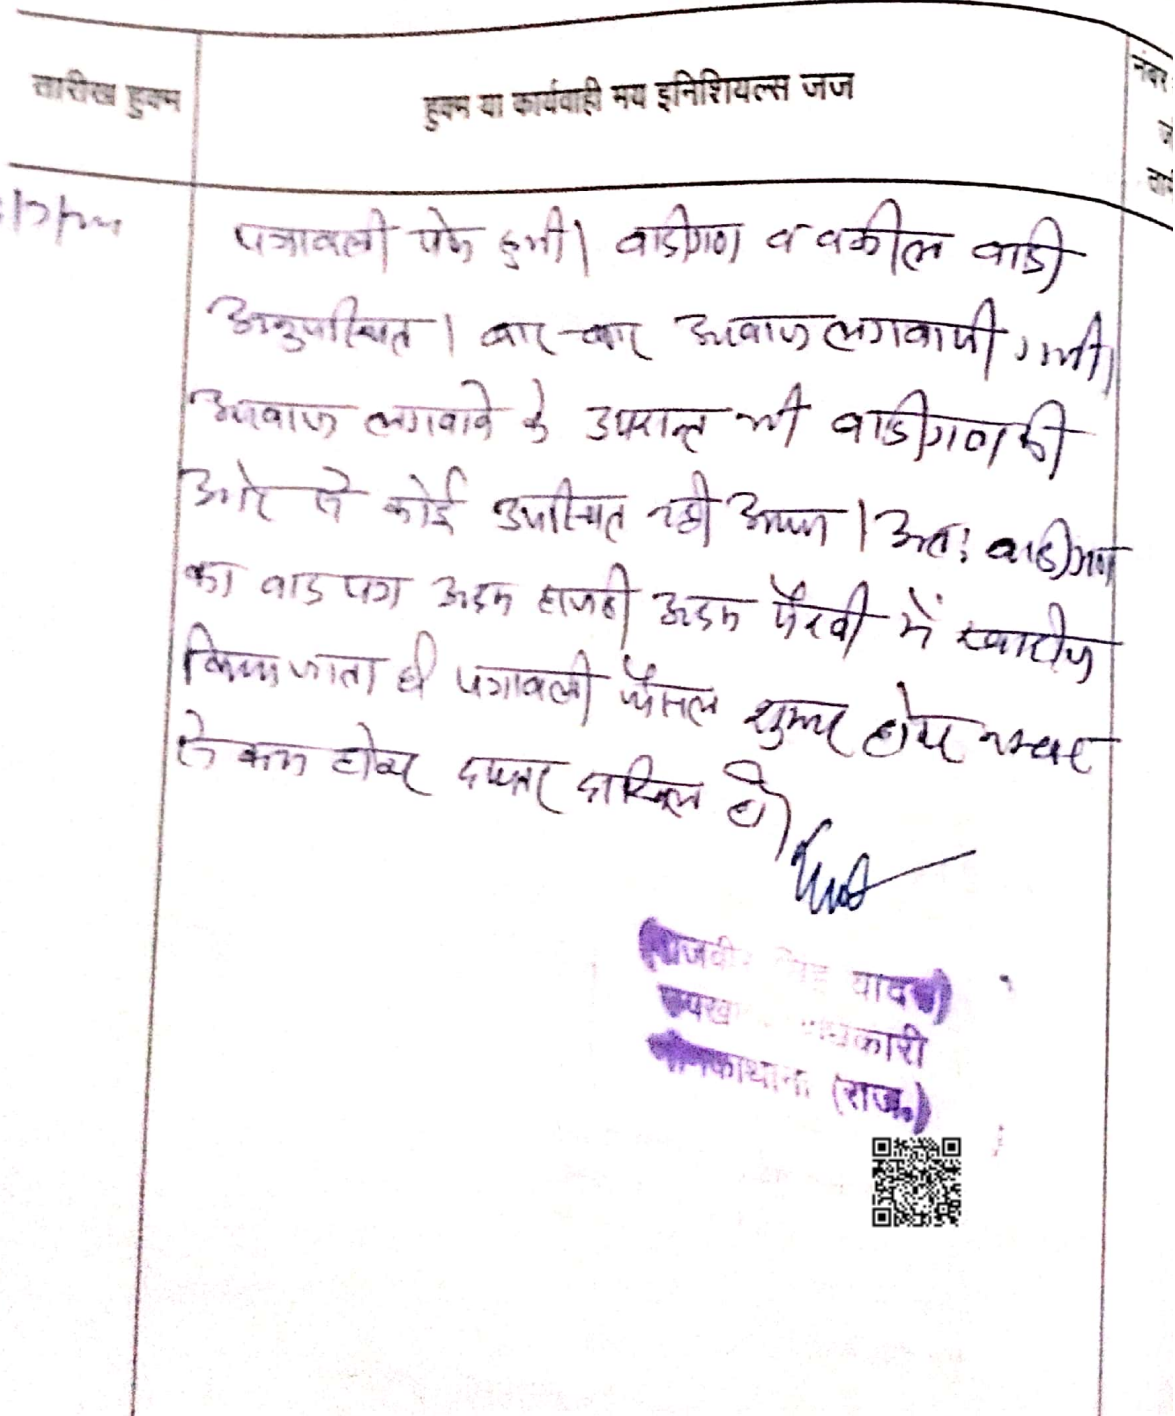 तारीख हुक्म
हुक्म या कार्यवाही मय इनिशियल्स जज
नंबर
पत्रावली पेश हुयी। वादीगण व वकील वादी
अनुपस्थित। बार-बार आवाज लगवायी गयी।
आवाज लगवाने के उपरान्त भी वादीगण की
ओर से कोई उपस्थित नही आया। अतः वादीगण
का वाद पत्र अदम हाजरी अदम पैरवी में खारीज
किया जाता है। पत्रावली फैसल शुमार होकर नम्बर
से कम होकर दफ्तर दाखिल हो।
यादव)
अधिकारी
नीमकाथाना (राज.)